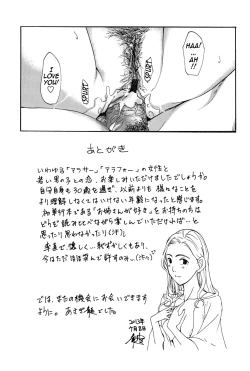 HAA!
... AH!!
I LOVE YOU!♡
SPURT
SPURT
あとがき
いわゆる「アラサー」、「アラフォー」の女性と
若い男の子との恋、お楽しみいただけましたでしょうか。
自分自身も30歳を過ぎ、以前よりも様々なことを
より理解しなくてはいけない年齢になったと感じます。
初単行本である「お姉さんが好き」をお持ちの方は
どうぞ読み比べながら楽しんでいただければ…と
思ったり思わなかったり(汗)。
率直で嬉しく…恥ずかしくもあり、
今はただ
では、またの機会にお会いできます
ように。あさぎ龍でした。
2013年
7月8日